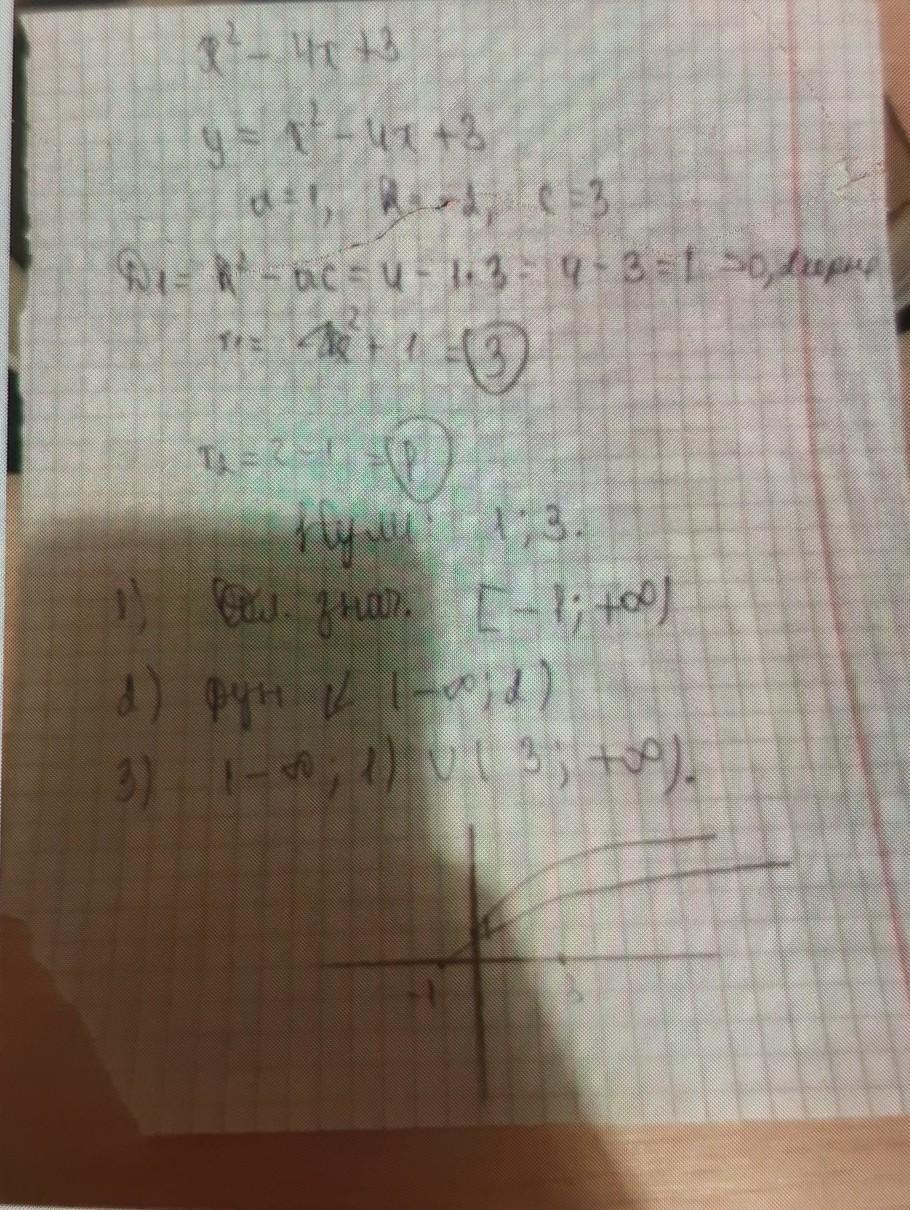 x² - 4x + 3
y = x² - 4x + 3
a = 1, k = -2, c = 3
D₁ = k² - ac = 4 - 1·3 = 4 - 3 = 1 > 0, 2 корня
x₁ = + 1 = 3
x₂ = 2 - 1 = 1
Нули: 1; 3.
1) знач. [-1; +∞)
2) фун ↙ (-∞; 2)
3) (-∞; 1) ∪ (3; +∞).
-1 3